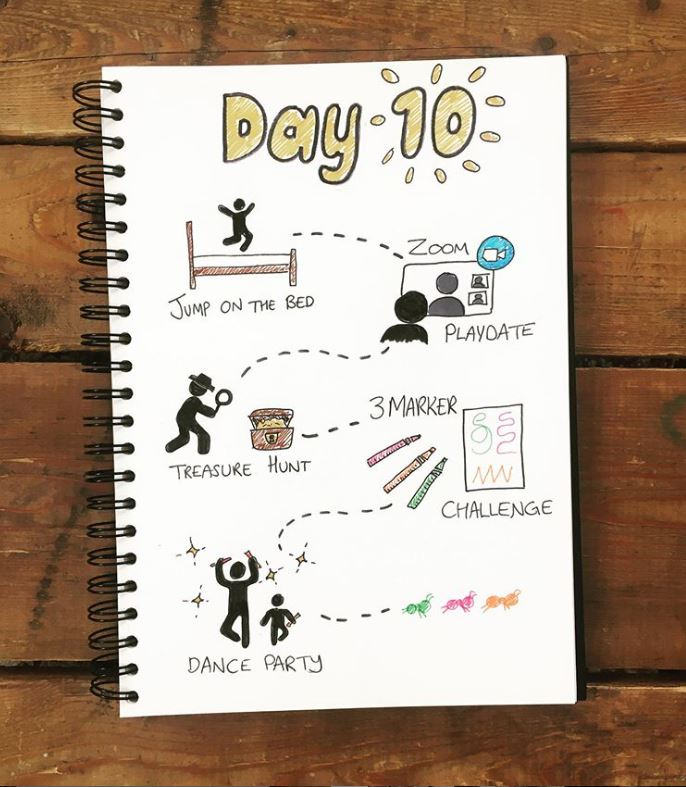 Day 10
JUMP ON THE BED
ZOOM
PLAYDATE
TREASURE HUNT
3 MARKER
CHALLENGE
DANCE PARTY